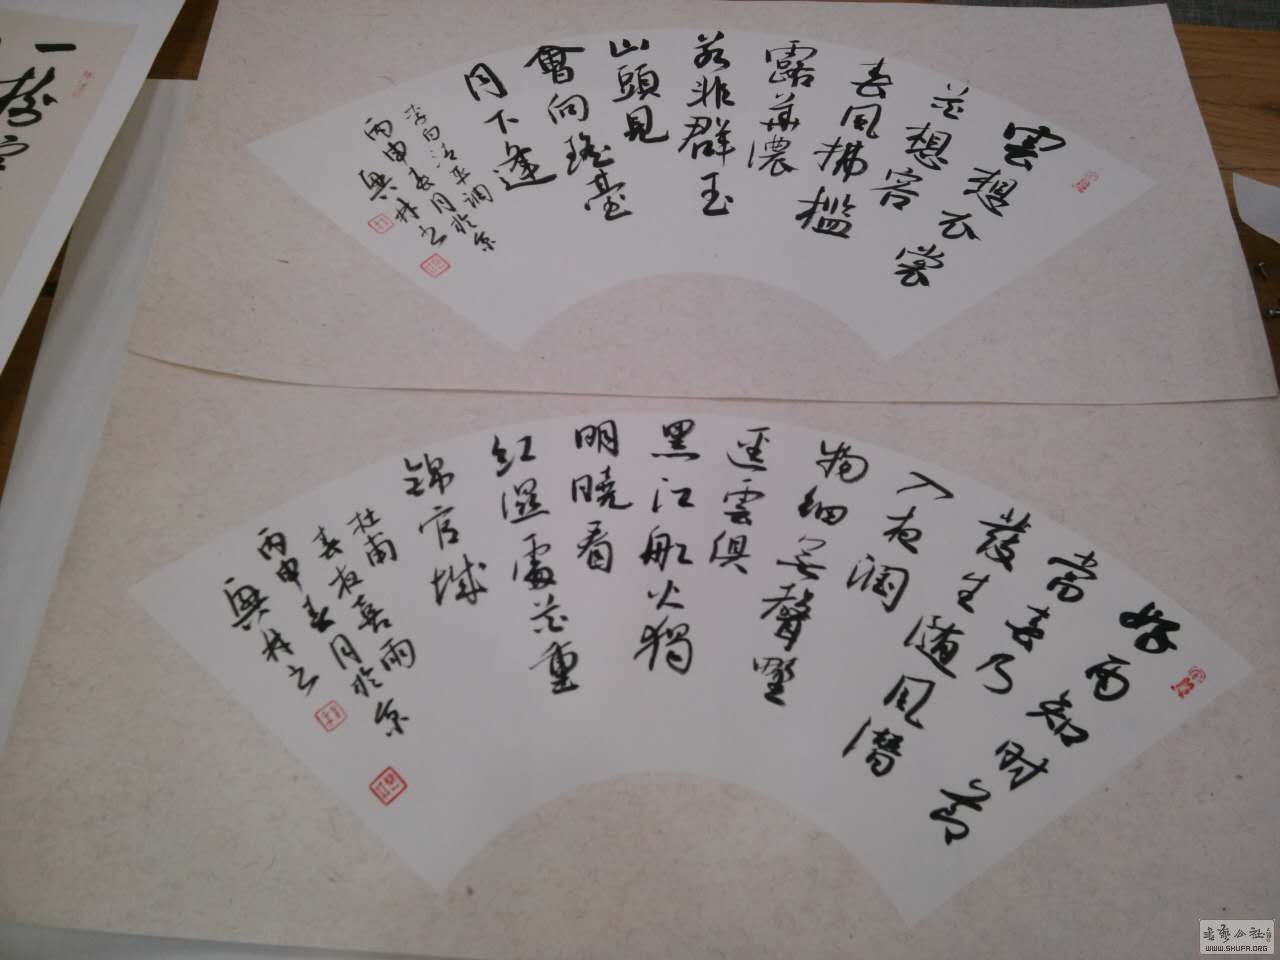 雲想衣裳
花想容
春風拂檻
露華濃
若非群玉
山頭見
會向瑤臺
月下逢
李白清平調
丙申春月於京
興书
好雨知时節
當春乃
發生随風潛
入夜潤
物細無聲野
徑雲俱
黑江船火獨
明曉看
紅濕處花重
錦官城
杜甫
春夜喜雨
丙申春月於京
興书
一
WWW.SHUFA.ORG